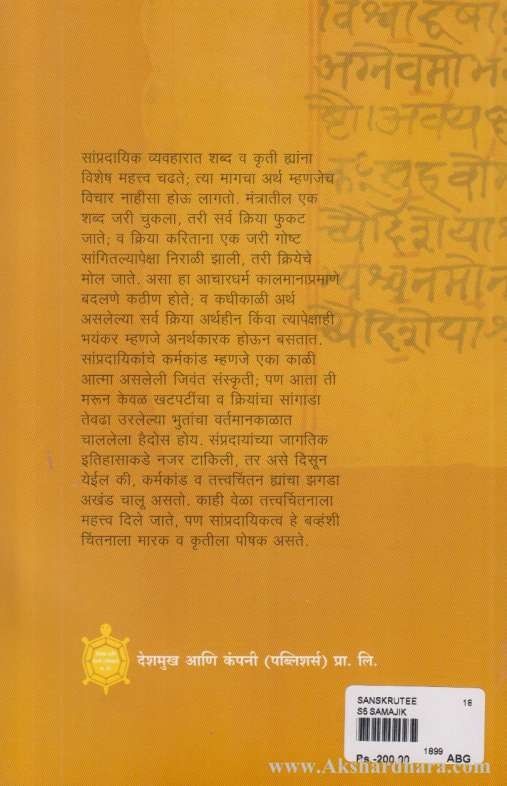 विश्वाद्दषा
अग्नेवमोभ
ष्टो।अवय
सांप्रदायिक व्यवहारात शब्द व कृती ह्यांना
विशेष महत्त्व चढते; त्या मागचा अर्थ म्हणजेच
विचार नाहीसा होऊ लागतो. मंत्रातील एक
शब्द जरी चुकला, तरी सर्व क्रिया फुकट
जाते; व क्रिया करिताना एक जरी गोष्ट
सांगितल्यापेक्षा निराळी झाली, तरी क्रियेचे
मोल जाते. असा हा आचारधर्म कालमानाप्रमाणे
बदलणे कठीण होते; व कधीकाळी अर्थ
असलेल्या सर्व क्रिया अर्थहीन किंवा त्यापेक्षाही
भयंकर म्हणजे अनर्थकारक होऊन बसतात.
सांप्रदायिकांचे कर्मकांड म्हणजे एका काळी
आत्मा असलेली जिवंत संस्कृती; पण आता ती
मरून केवळ खटपटींचा व क्रियांचा सांगाडा
तेवढा उरलेल्या भुतांचा वर्तमानकाळात
चाललेला हैदोस होय. संप्रदायांच्या जागतिक
इतिहासाकडे नजर टाकिली, तर असे दिसून
येईल की, कर्मकांड व तत्त्वचिंतन ह्यांचा झगडा
अखंड चालू असतो. काही वेळा तत्त्वचिंतनाला
महत्त्व दिले जाते, पण सांप्रदायिकत्व हे बव्हंशी
चिंतनाला मारक व कृतीला पोषक असते.
देशमुख आणि कंपनी (पब्लिशर्स) प्रा. लि.
SANSKRUTEE 18
S5 SAMAJIK
1899
Rs.-200.00 ABG
www.Akshardhara.com